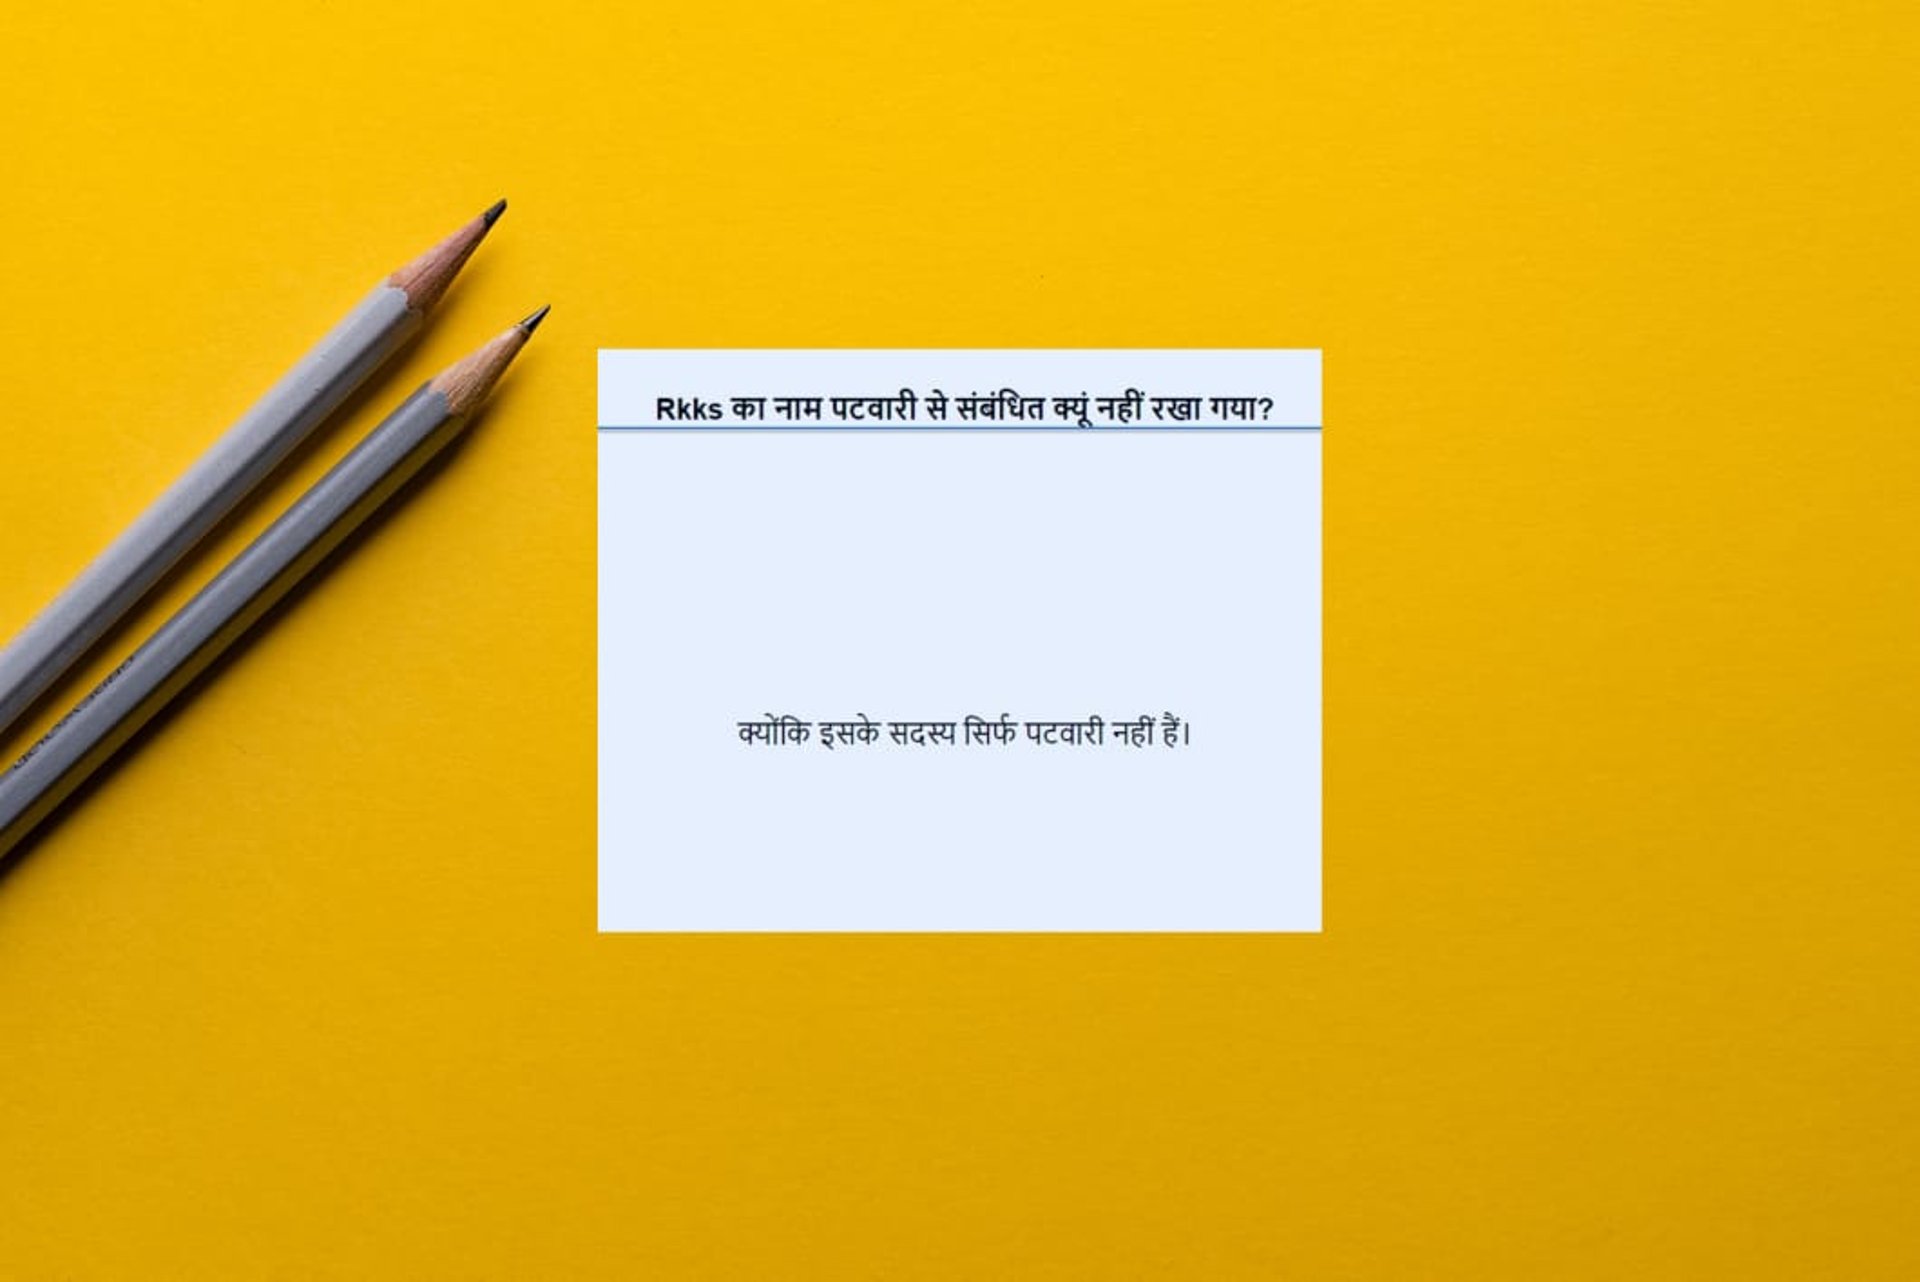 Rkks का नाम पटवारी से संबंधित क्यूं नहीं रखा गया?
क्योंकि इसके सदस्य सिर्फ पटवारी नहीं हैं।